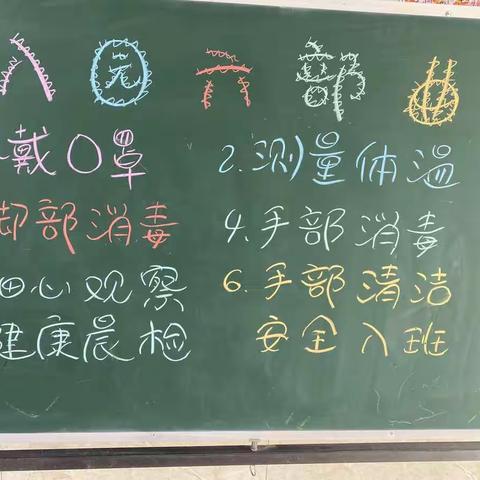 入园六部曲
戴口罩 2.测量体温
脚部消毒 4.手部消毒
细心观察 6.手部清洁
健康晨检 安全入班